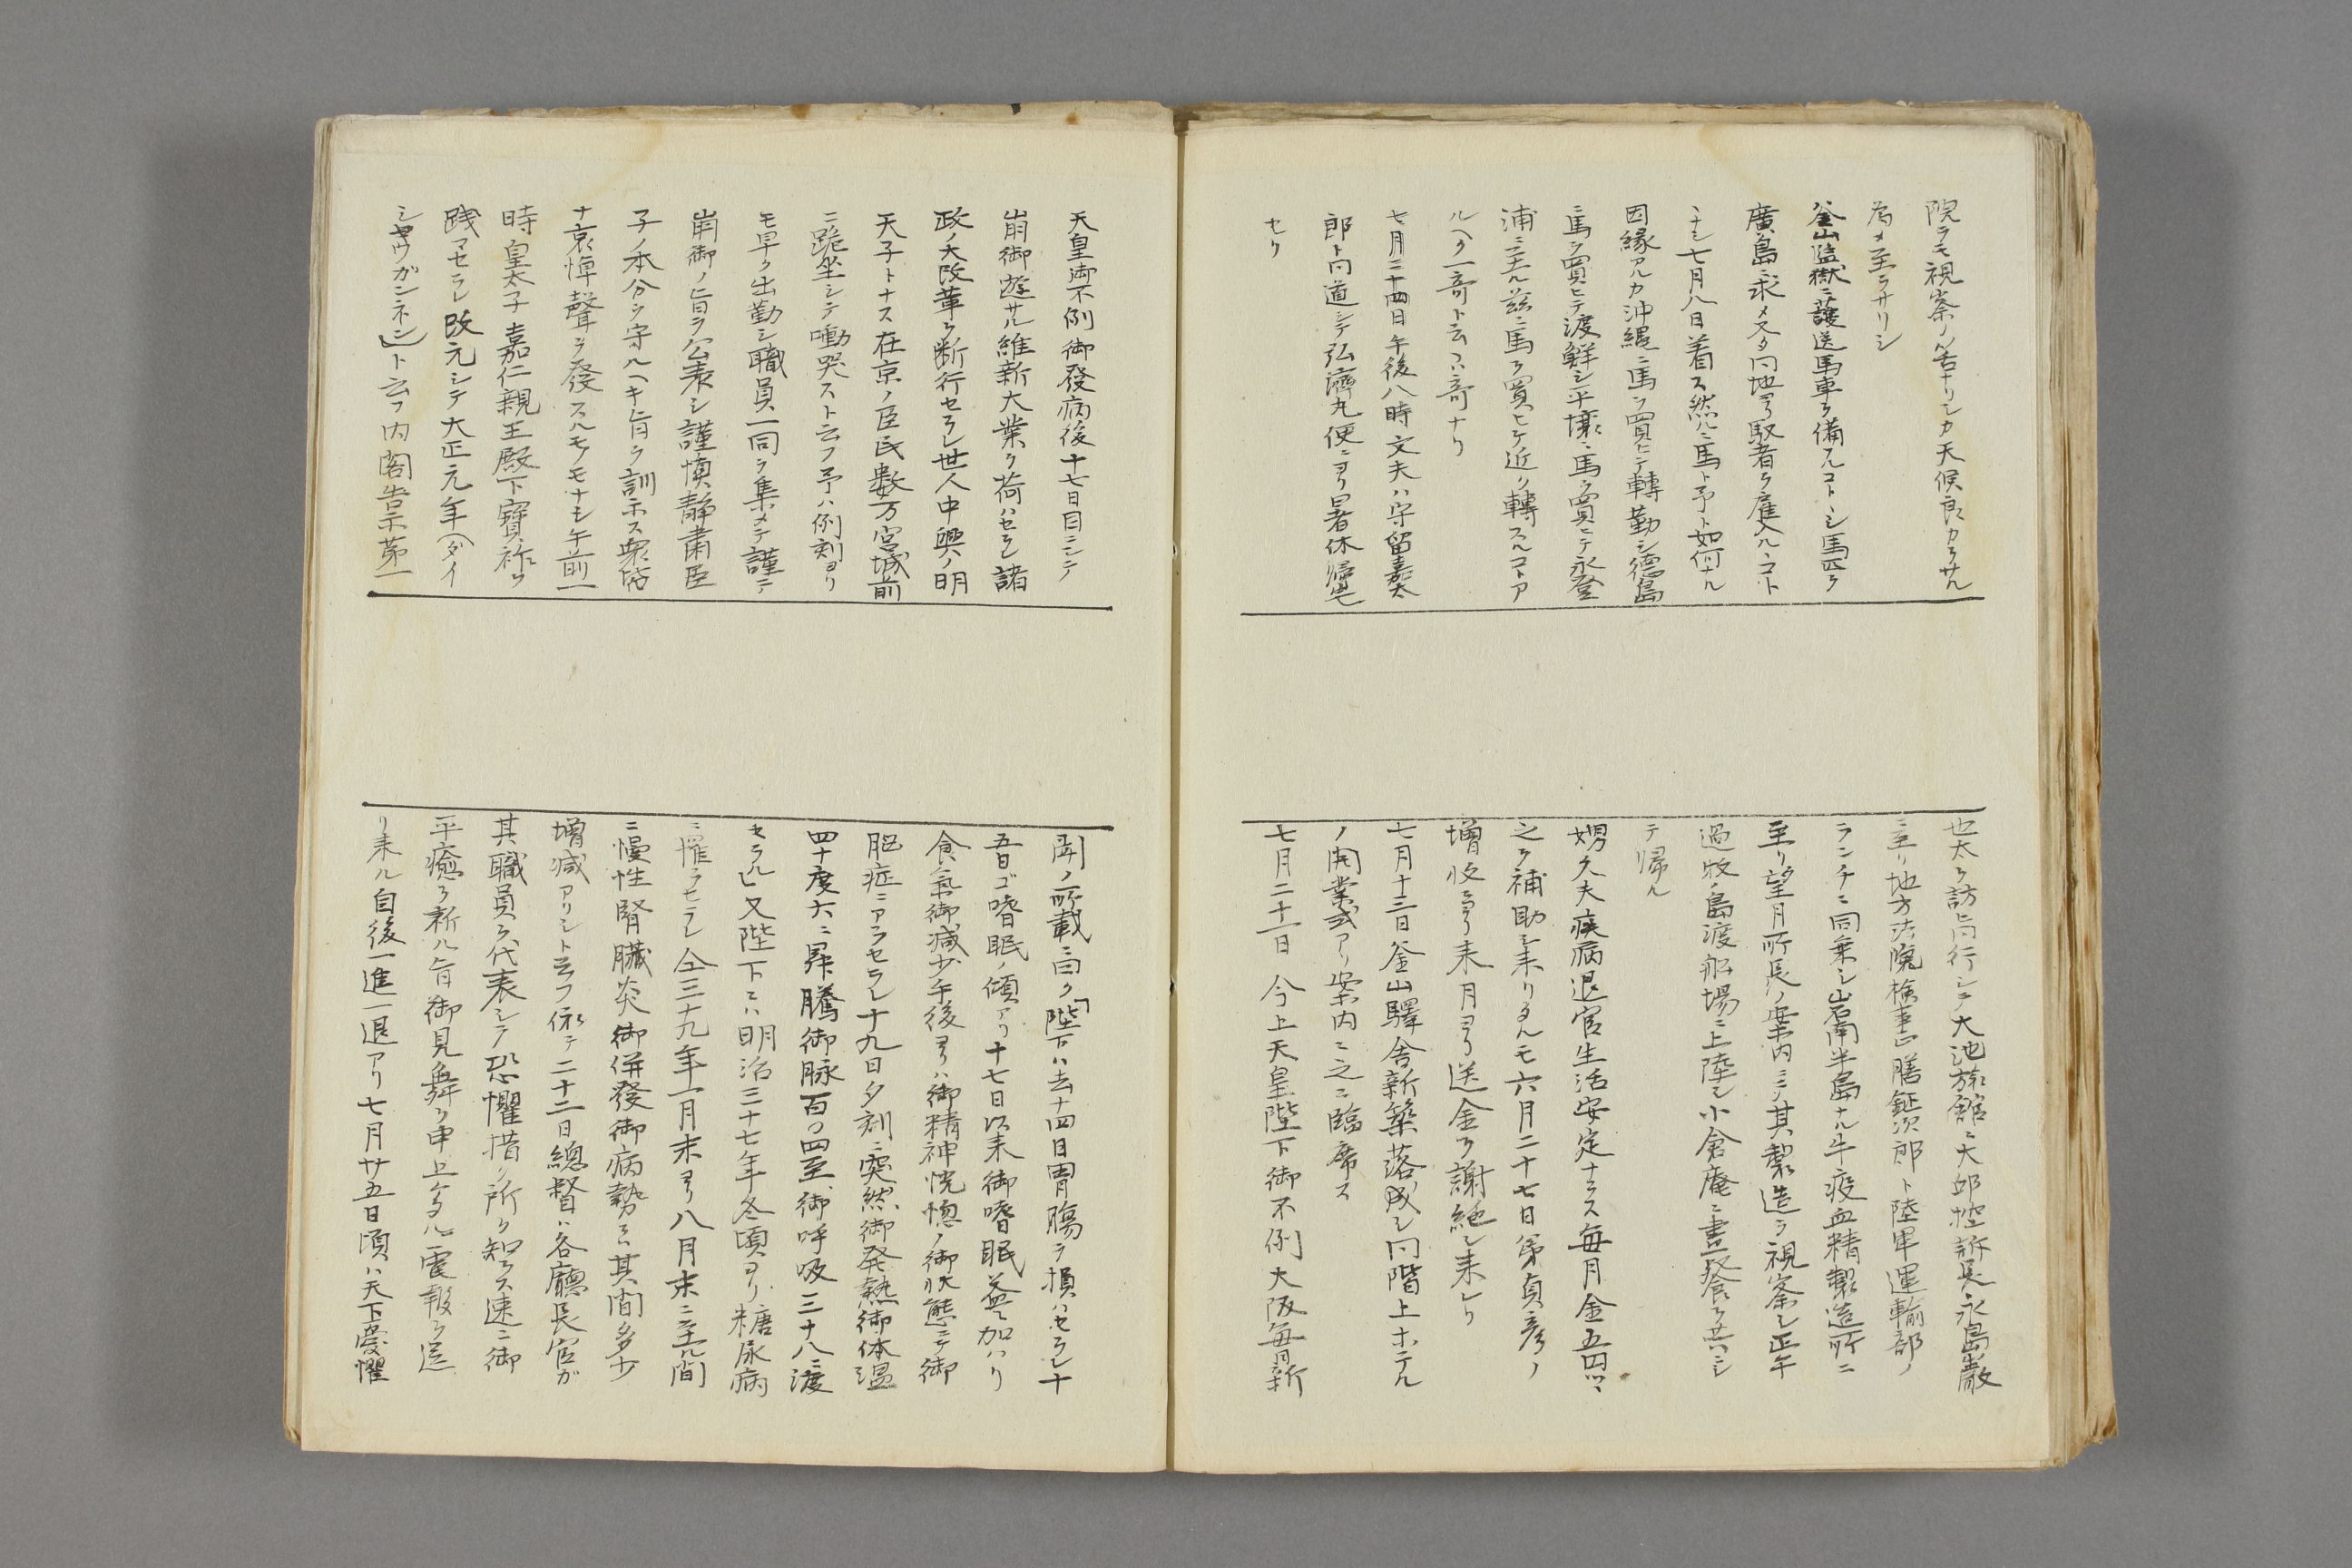 院ヲモ視察ノ筈ナリシカ天候良カラサル
為メ至ラサリシ
釜山監獄ニ護送馬車ヲ備フルコトヽシ馬匹ヲ
廣島ニ求メ又タ同地ヨリ馭者ヲ雇入ルヽコト
ヽナシ七月八日着ス然ルニ馬ト予ト如何ナル
因縁アルカ沖縄ニ馬ヲ買ヒテ轉勤シ徳島
ニ馬ヲ買ヒテ渡鮮シ平壌ニ馬ヲ買ヒテ永登
浦ニ至ル茲ニ馬ヲ買ヒテ近ク轉スルコトア
ルヘク一奇ト云ハヽ奇ナリ
七月二十四日午後八時文夫ハ守留嘉太
郎ト同道シテ弘濟丸便ニヨリ暑休帰宅
セリ
也太ヲ訪ヒ同行シテ大池旅館ニ大邱控訴院長永島巌
ニ至リ地方法院檢事正膳鉦次郎ト陸軍運輸部ノ
ランチニ同乗シ岩南半島ナル牛疫血精製造所ニ
至リ望月所長ノ案内ニテ其製造ヲ視察シ正午
過牧ノ島渡船場ニ上陸シ小倉庵ニ晝餐ヲ共ニシ
テ帰ル
甥久夫疾病退官生活安定ナラス毎月金五円ツヽ
之ヲ補助シ来リタルモ六月二十七日弟貞彦ノ
増收ニヨリ来月ヨリ送金ヲ謝絶シ来レリ
七月十三日釜山驛舎新築落成シ同階上ホテル
ノ開業式アリ案内ニ之ニ臨席ス
七月二十一日 今上天皇陛下御不例大阪毎日新
天皇御不例御發病後十七日目ニシテ
崩御遊サル維新大業ヲ荷ハセラレ諸
政ノ大改革ヲ断行セラレ世人中興ノ明
天子トナス在京ノ臣民數万宮城前
ニ跪坐シテ慟哭スト云フ予ハ例刻ヨリ
モ早ク出勤シ職員一同ヲ集メテ謹テ
崩御ノ旨ヲ公表シ謹慎靜肅臣
子ノ本分ヲ守ルヘキ旨ヲ訓示ス衆皆
ナ哀悼聲ヲ發スルモノモナシ午前一
時皇太子嘉仁親王殿下寶祚ヲ
践マセラレ改元シテ大正元年(ダイ
シヤウガンネン)ト云フ内閣告示第一
聞ノ所載ニ曰ク「陛下ハ去十四日胃腸ヲ損ハセラレ十
五日ゴ嗜眠ノ傾アリ十七日以来御嗜眠益々加ハリ
食氣御減少午後ヨリハ御精神恍惚ノ御状態ニテ御
脳症ニアラセラレ十九日夕刻ニ突然御発熱御体温
四十度六ニ昇騰御脉百〇四至、御呼吸三十八ニ渡
セラル」又陛下ニハ明治三十七年冬頃ヨリ糖尿病
ニ罹ラセラレ仝三十九年一月末ヨリ八月末ニ至ル間
ニ慢性腎臓炎御併發御病勢ニハ其間多少
増減アリシト云フ依テ二十二日總督ハ各廳長官ガ
其職員ヲ代表シテ恐懼措ク所ヲ知ラス速ニ御
平癒ヲ祈ル旨御見舞ヲ申上タル電報ヲ送
リ来ル自後一進一退アリ七月廿五日頃ハ天下憂懼